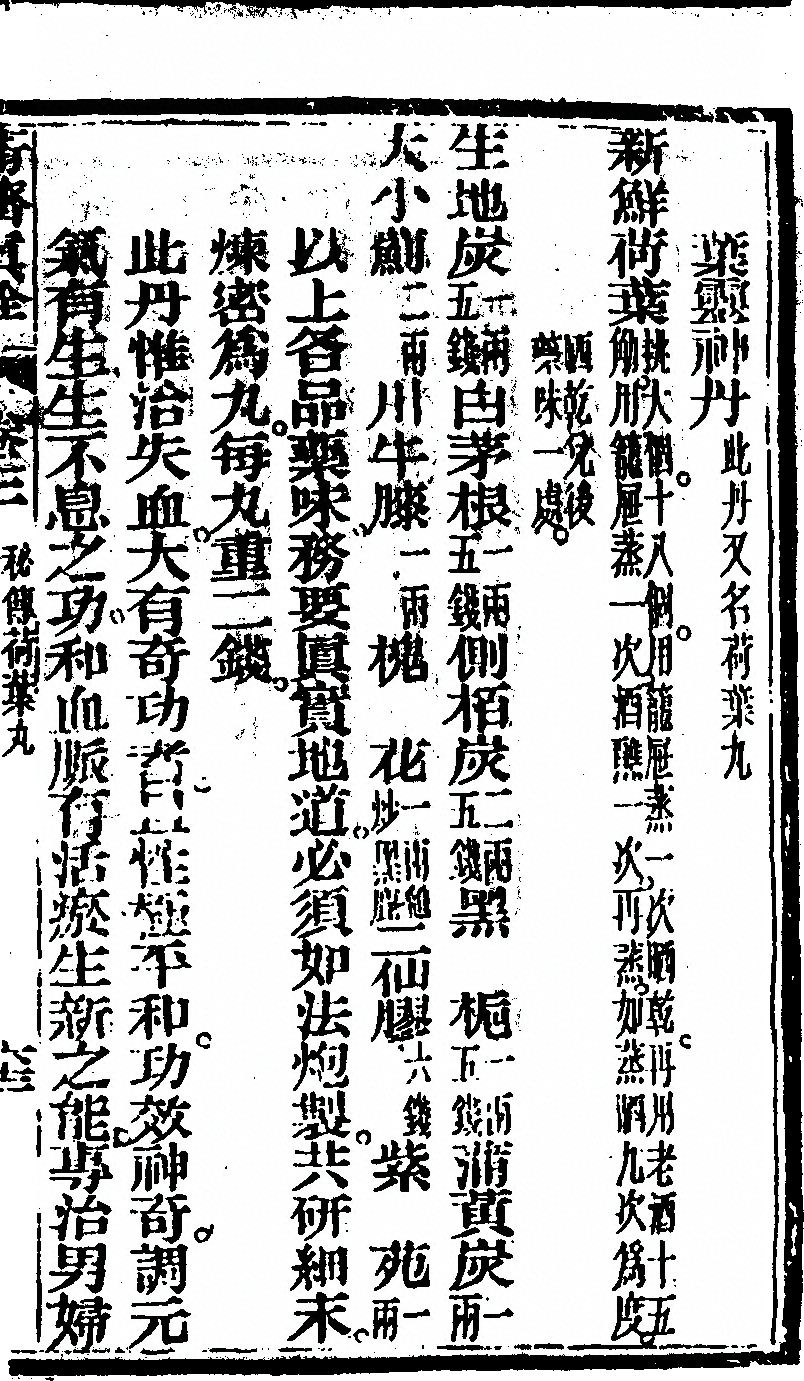 葉靈神丹此丹又名荷葉丸
新鮮荷葉挑大個十八個用籠屉蒸一次晒乾再用老酒十五觔用籠屉蒸一次酒醮一次再蒸如蒸晒九次爲度
晒乾兌後藥味一處
生地炭一兩五錢白茅根一兩五錢側栢炭二兩五錢黑梔一兩五錢蒲黃炭一兩
大小薊二兩川牛膝一兩槐花一兩炒黑二仙膠六錢紫苑一兩
以上各品藥味務要眞實地道必須如法炮製共研細末
煉密爲丸每丸重二錢
此丹惟治失血大有奇功性極平和功效神奇調元
氣有生生不息之功和血脈有活瘀生新之能專治男婦
秘傳荷葉丸